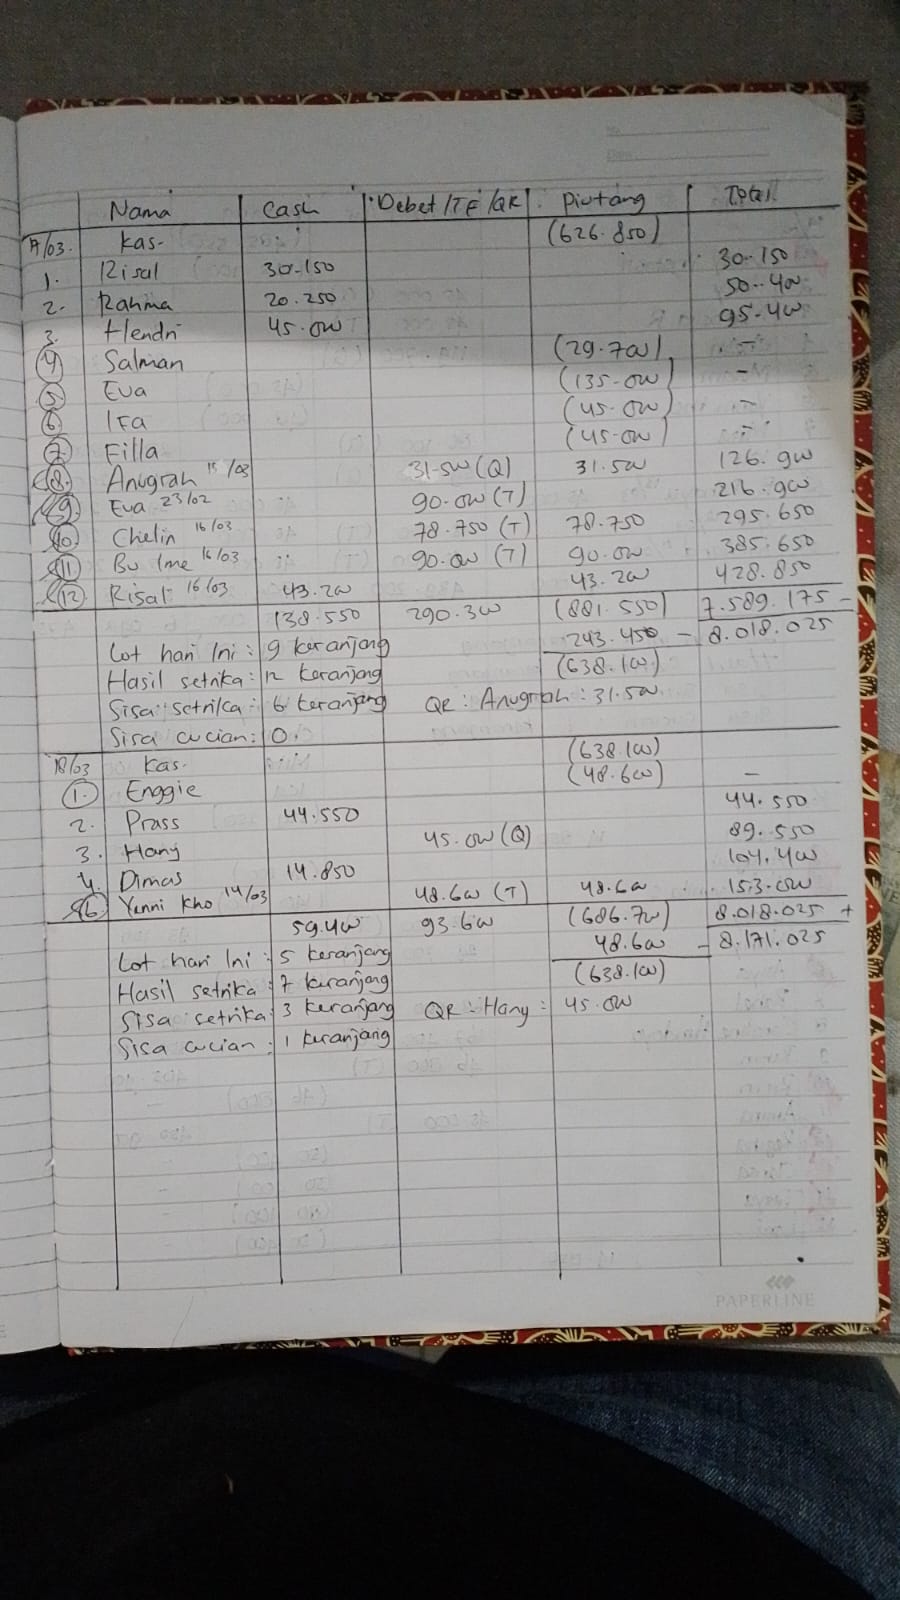 Nama Cash Debet/TF/QR Piutang Total
17/03. Kas- (626.850)
1. Risal 30.150 30.150
2. Rahma 20.250 50.400
3. Hendri 45.000 95.400
4 Salman (29.700) -
5 Eva (135.000) -
6 Ifa (45.000) -
7 Filla (45.000) -
8 Anugrah 15/03 31.500 (Q) 31.500 126.900
9 Eva 23/02 90.000 (T) 216.900
10 Chelin 16/03 78.750 (T) 78.750 295.650
11 Bu Ime 16/03 90.000 (T) 90.000 385.650
12 Risal 16/03 43.200 43.200 428.850
138.550 290.300 (881.550) 7.589.175 -
Cot hari Ini : 9 keranjang 243.450 - 8.018.025
Hasil setrika : 12 keranjang (638.100)
Sisa setrika : 6 keranjang QR : Anugrah : 31.500
Sisa cucian : 0
18/03 Kas. (638.100)
1. Enggie (48.600) -
2. Prass 44.550 44.550
3. Hany 45.000 (Q) 89.550
4. Dimas 14.850 104.400
Yenni Kho 14/03 48.600 (T) 48.600 153.000
59.400 93.600 (686.700) 8.018.025 +
Cot hari Ini : 5 keranjang 48.600 - 8.171.025
Hasil setrika : 7 keranjang (638.100)
Sisa setrika : 3 keranjang QR : Hany : 45.000
Sisa cucian : 1 keranjang
PAPERLINE